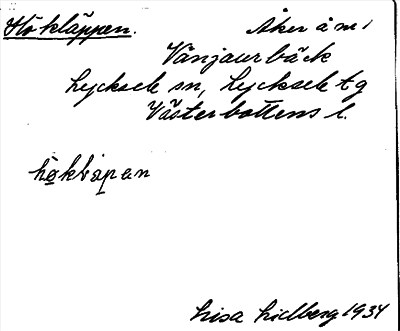 Hökläppen. Åker å nr 1
Vänjaurbäck
Lycksele sn, Lycksele tg
Västerbottens l.
hökläpan
Lisa Lidberg 1934